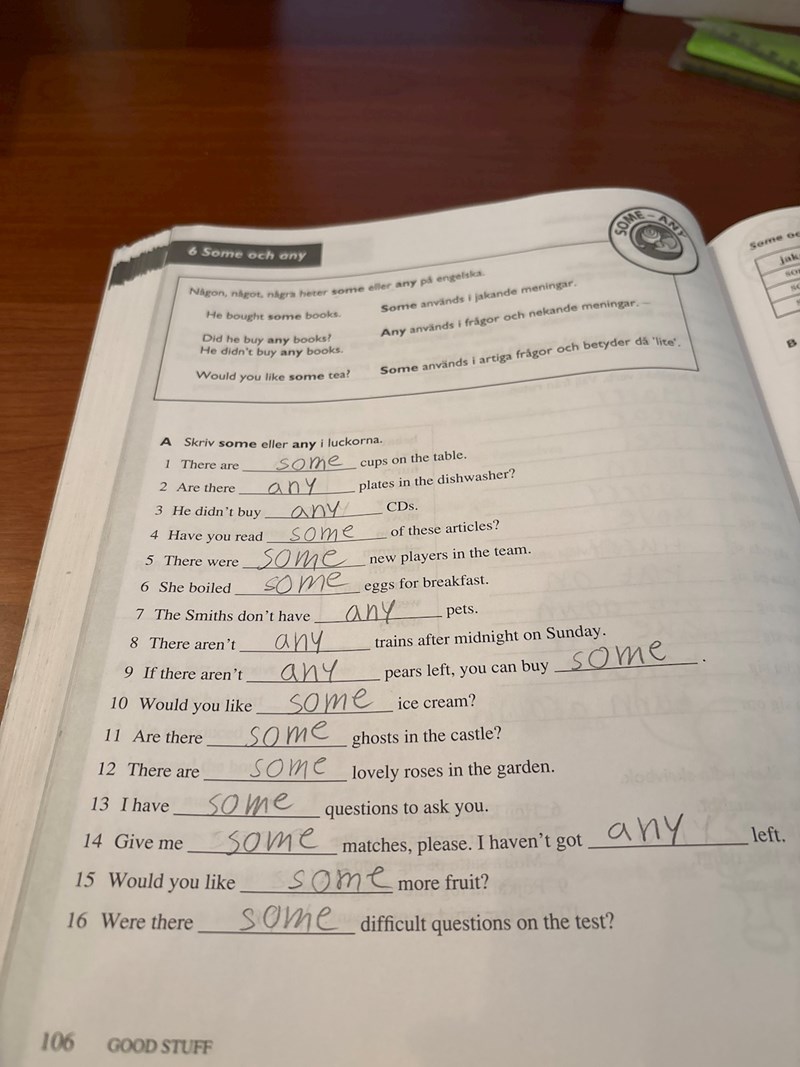 SOME – ANY
6 Some och any
Någon, något, några heter some eller any på engelska.
He bought some books. Some används i jakande meningar.
Did he buy any books? Any används i frågor och nekande meningar. –
He didn't buy any books.
Would you like some tea? Some används i artiga frågor och betyder då 'lite'.
A Skriv some eller any i luckorna.
1 There are some cups on the table.
2 Are there any plates in the dishwasher?
3 He didn't buy any CDs.
4 Have you read some of these articles?
5 There were some new players in the team.
6 She boiled some eggs for breakfast.
7 The Smiths don't have any pets.
8 There aren't any trains after midnight on Sunday.
9 If there aren't any pears left, you can buy some.
10 Would you like some ice cream?
11 Are there some ghosts in the castle?
12 There are some lovely roses in the garden.
13 I have some questions to ask you.
14 Give me some matches, please. I haven't got any left.
15 Would you like some more fruit?
16 Were there some difficult questions on the test?
106 GOOD STUFF
Some
B